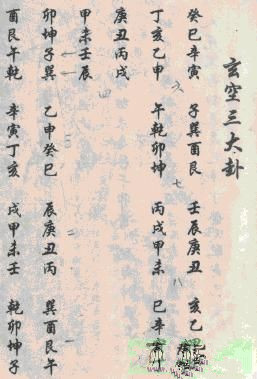 玄空三大卦
癸巳辛寅 子巽酉艮 壬辰庚丑 亥乙
六 七 八
丁亥乙申 午乾卯坤 丙戌甲未 巳辛
庚丑丙戌
四
甲未壬辰
卯坤子巽 乙申癸巳 辰庚丑丙 巽酉艮午
二 一
酉艮午乾 辛寅丁亥 戌甲未壬 乾卯坤子